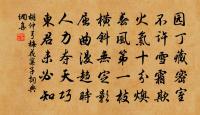 園丁藏密室
不許雪霜欺
火氣十分煖
春風第一枝
橫斜無定影
屈曲漫趨時
人力奪天巧
東君未必知
胡仲弓梅花子詞典
網